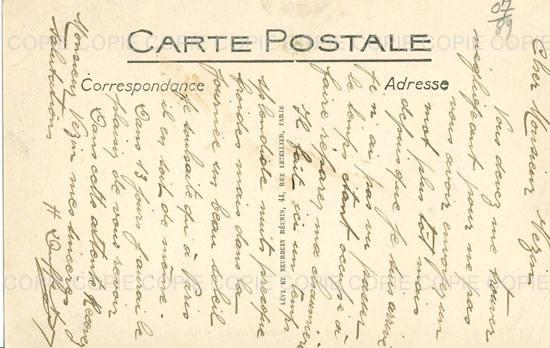 COPIE COPIE COPIE COPIE COPIE COPIE
CARTE POSTALE
Correspondance
Adresse
LÉVY ET NEURDEIN RÉUNIS, 44, RUE LETELLIER, PARIS
Cher Monsieur
Vous devez me trouver
négligeant pour ne pas
vous avoir envoyé un
mot plus tôt mais
depuis que je suis arrivé
je n'ai pas un
le temps étant occupé à
faire réparer ma
Il fait ici un temps
splendide nuits presque
froides mais dans la
journée un beau soleil
je souhaite qu'à Paris
il en soit de même.
Dans 13 jours j'aurai le
plaisir de vous revoir
Dans cette attente Recevez
Monsieur mes sincères
Salutations
COPIE COPIE COPIE COPIE COPIE COPIE